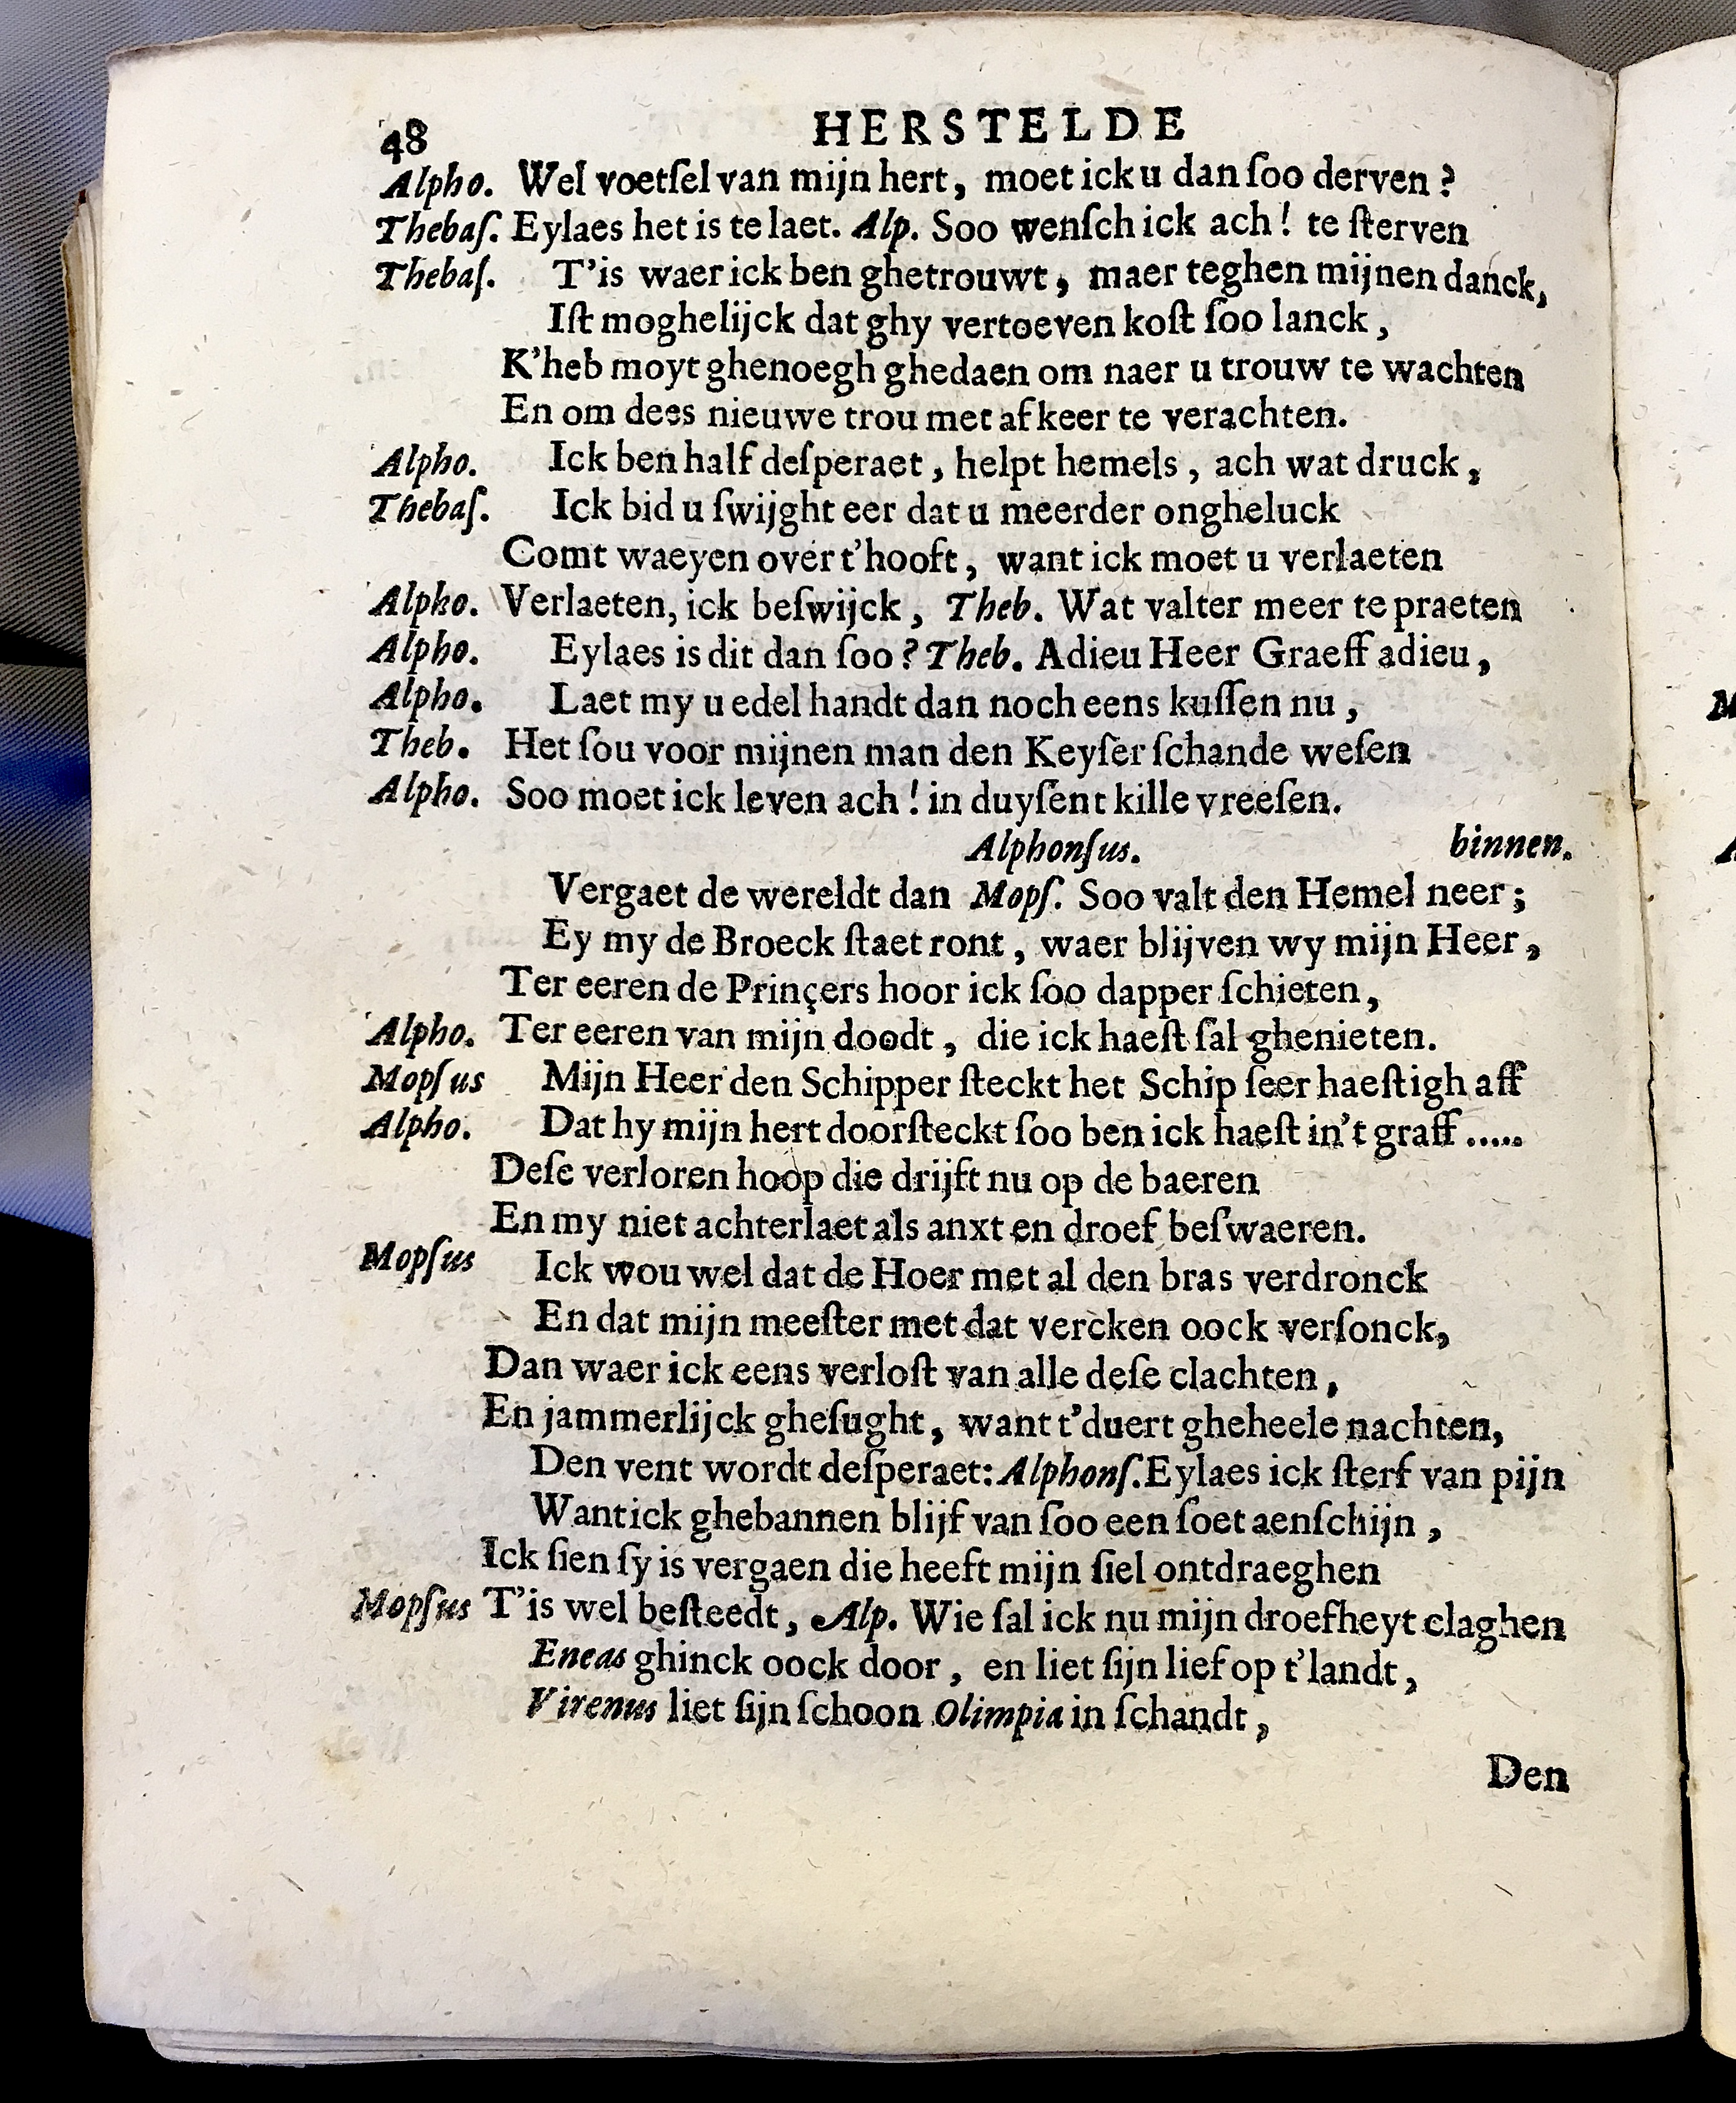 48 HERSTELDE
Alpho. Wel voetſel van mijn hert, moet ick u dan ſoo derven?
Thebaſ. Eylaes het is te laet. Alp. Soo wenſch ick ach! te ſterven
Thebaſ. T'is waer ick ben ghetrouwt, maer teghen mijnen danck,
Iſt moghelijck dat ghy vertoeven koſt ſoo lanck,
K'heb moyt ghenoegh ghedaen om naer u trouw te wachten
En om dees nieuwe trou met afkeer te verachten.
Alpho. Ick ben half deſperaet, helpt hemels, ach wat druck,
Thebaſ. Ick bid u ſwijght eer dat u meerder ongheluck
Comt waeyen over t'hooft, want ick moet u verlaeten
Alpho. Verlaeten, ick beſwijck, Theb. Wat valter meer te praeten
Alpho. Eylaes is dit dan ſoo? Theb. Adieu Heer Graeff adieu,
Alpho. Laet my u edel handt dan noch eens kuſſen nu,
Theb. Het ſou voor mijnen man den Keyſer ſchande weſen
Alpho. Soo moet ick leven ach! in duyſent kille vreeſen.
Alphonſus. binnen.
Vergaet de wereldt dan Mopſ. Soo valt den Hemel neer;
Ey my de Broeck ſtaet ront, waer blijven wy mijn Heer,
Ter eeren de Prinçers hoor ick ſoo dapper ſchieten,
Alpho. Ter eeren van mijn doodt, die ick haeſt ſal ghenieten.
Mopſus Mijn Heer den Schipper ſteckt het Schip ſeer haeſtigh aff
Alpho. Dat hy mijn hert doorſteckt ſoo ben ick haeſt in't graff.....
Deſe verloren hoop die drijft nu op de baeren
En my niet achterlaet als anxt en droef beſwaeren.
Mopſus Ick wou wel dat de Hoer met al den bras verdronck
En dat mijn meeſter met dat vercken oock verſonck,
Dan waer ick eens verloſt van alle deſe clachten,
En jammerlijck gheſught, want t'duert gheheele nachten,
Den vent wordt deſperaet: Alphonſ. Eylaes ick ſterf van pijn
Want ick ghebannen blijf van ſoo een ſoet aenſchijn,
Ick ſien ſy is vergaen die heeft mijn ſiel ontdraeghen
Mopſus T'is wel beſteedt, Alp. Wie ſal ick nu mijn droefheyt claghen
Eneas ghinck oock door, en liet ſijn lief op t'landt,
Virenus liet ſijn ſchoon Olimpia in ſchandt,
Den